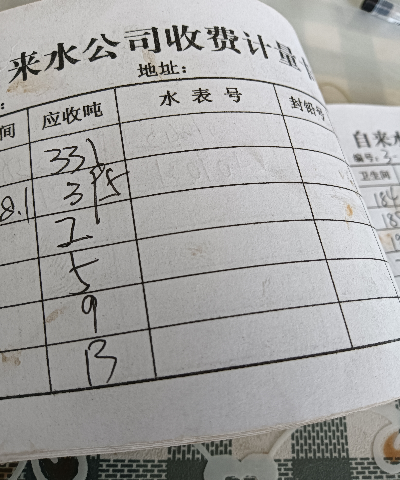 来水公司收费计量
地址:
间 应收吨 水表号 封铅号
331
8.1 3
2
5
9
13
自来水
编号: 3-
卫生间
184